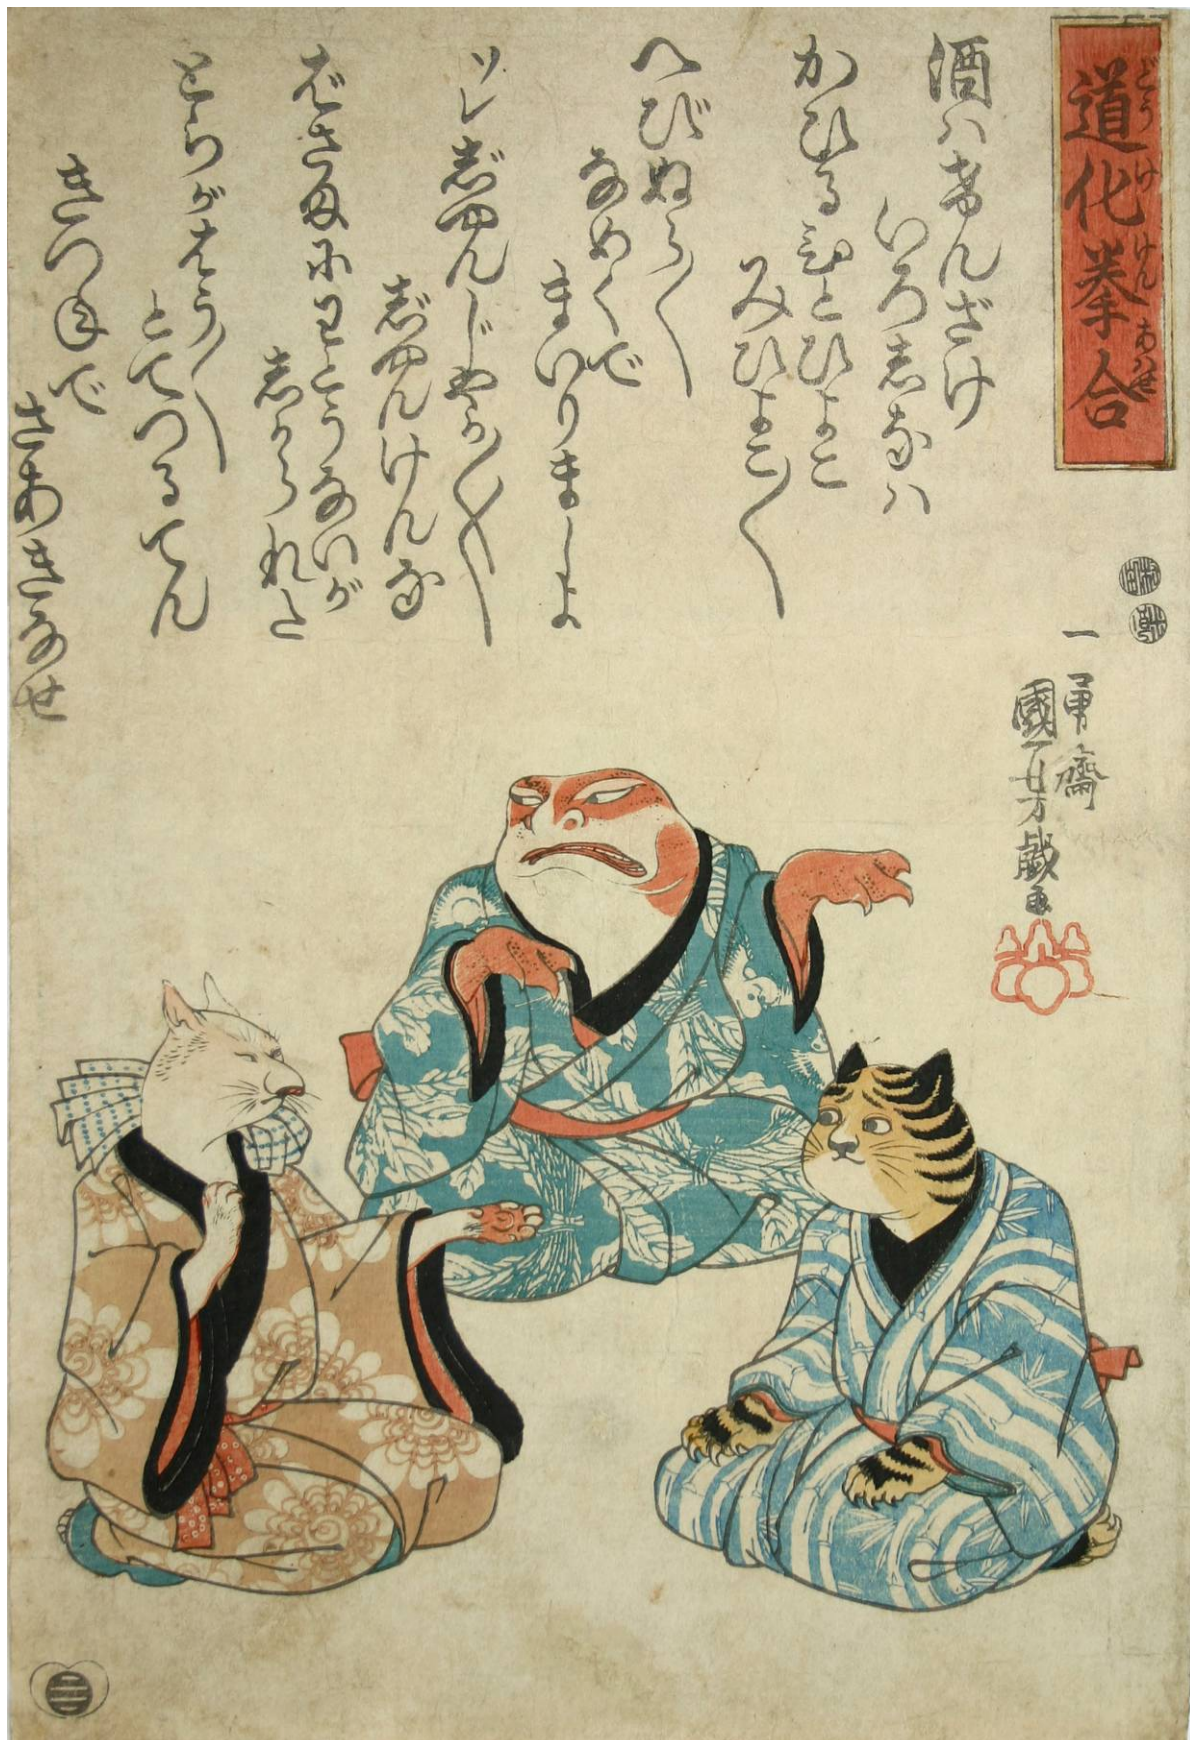 道化拳合
どうけけんあはせ
酒ハけんざけ
いろしなハ
かひるひとひよこ
みひよこ〱
へびぬら〱
なめくで
まいりましよ
ソレじやんじやか〱〱
じやんけんな
ばさまにわとうないが
しかられた
とらがはう〱
とてつるてん
きつねで
さあきなせ
一勇齋
國芳戯画